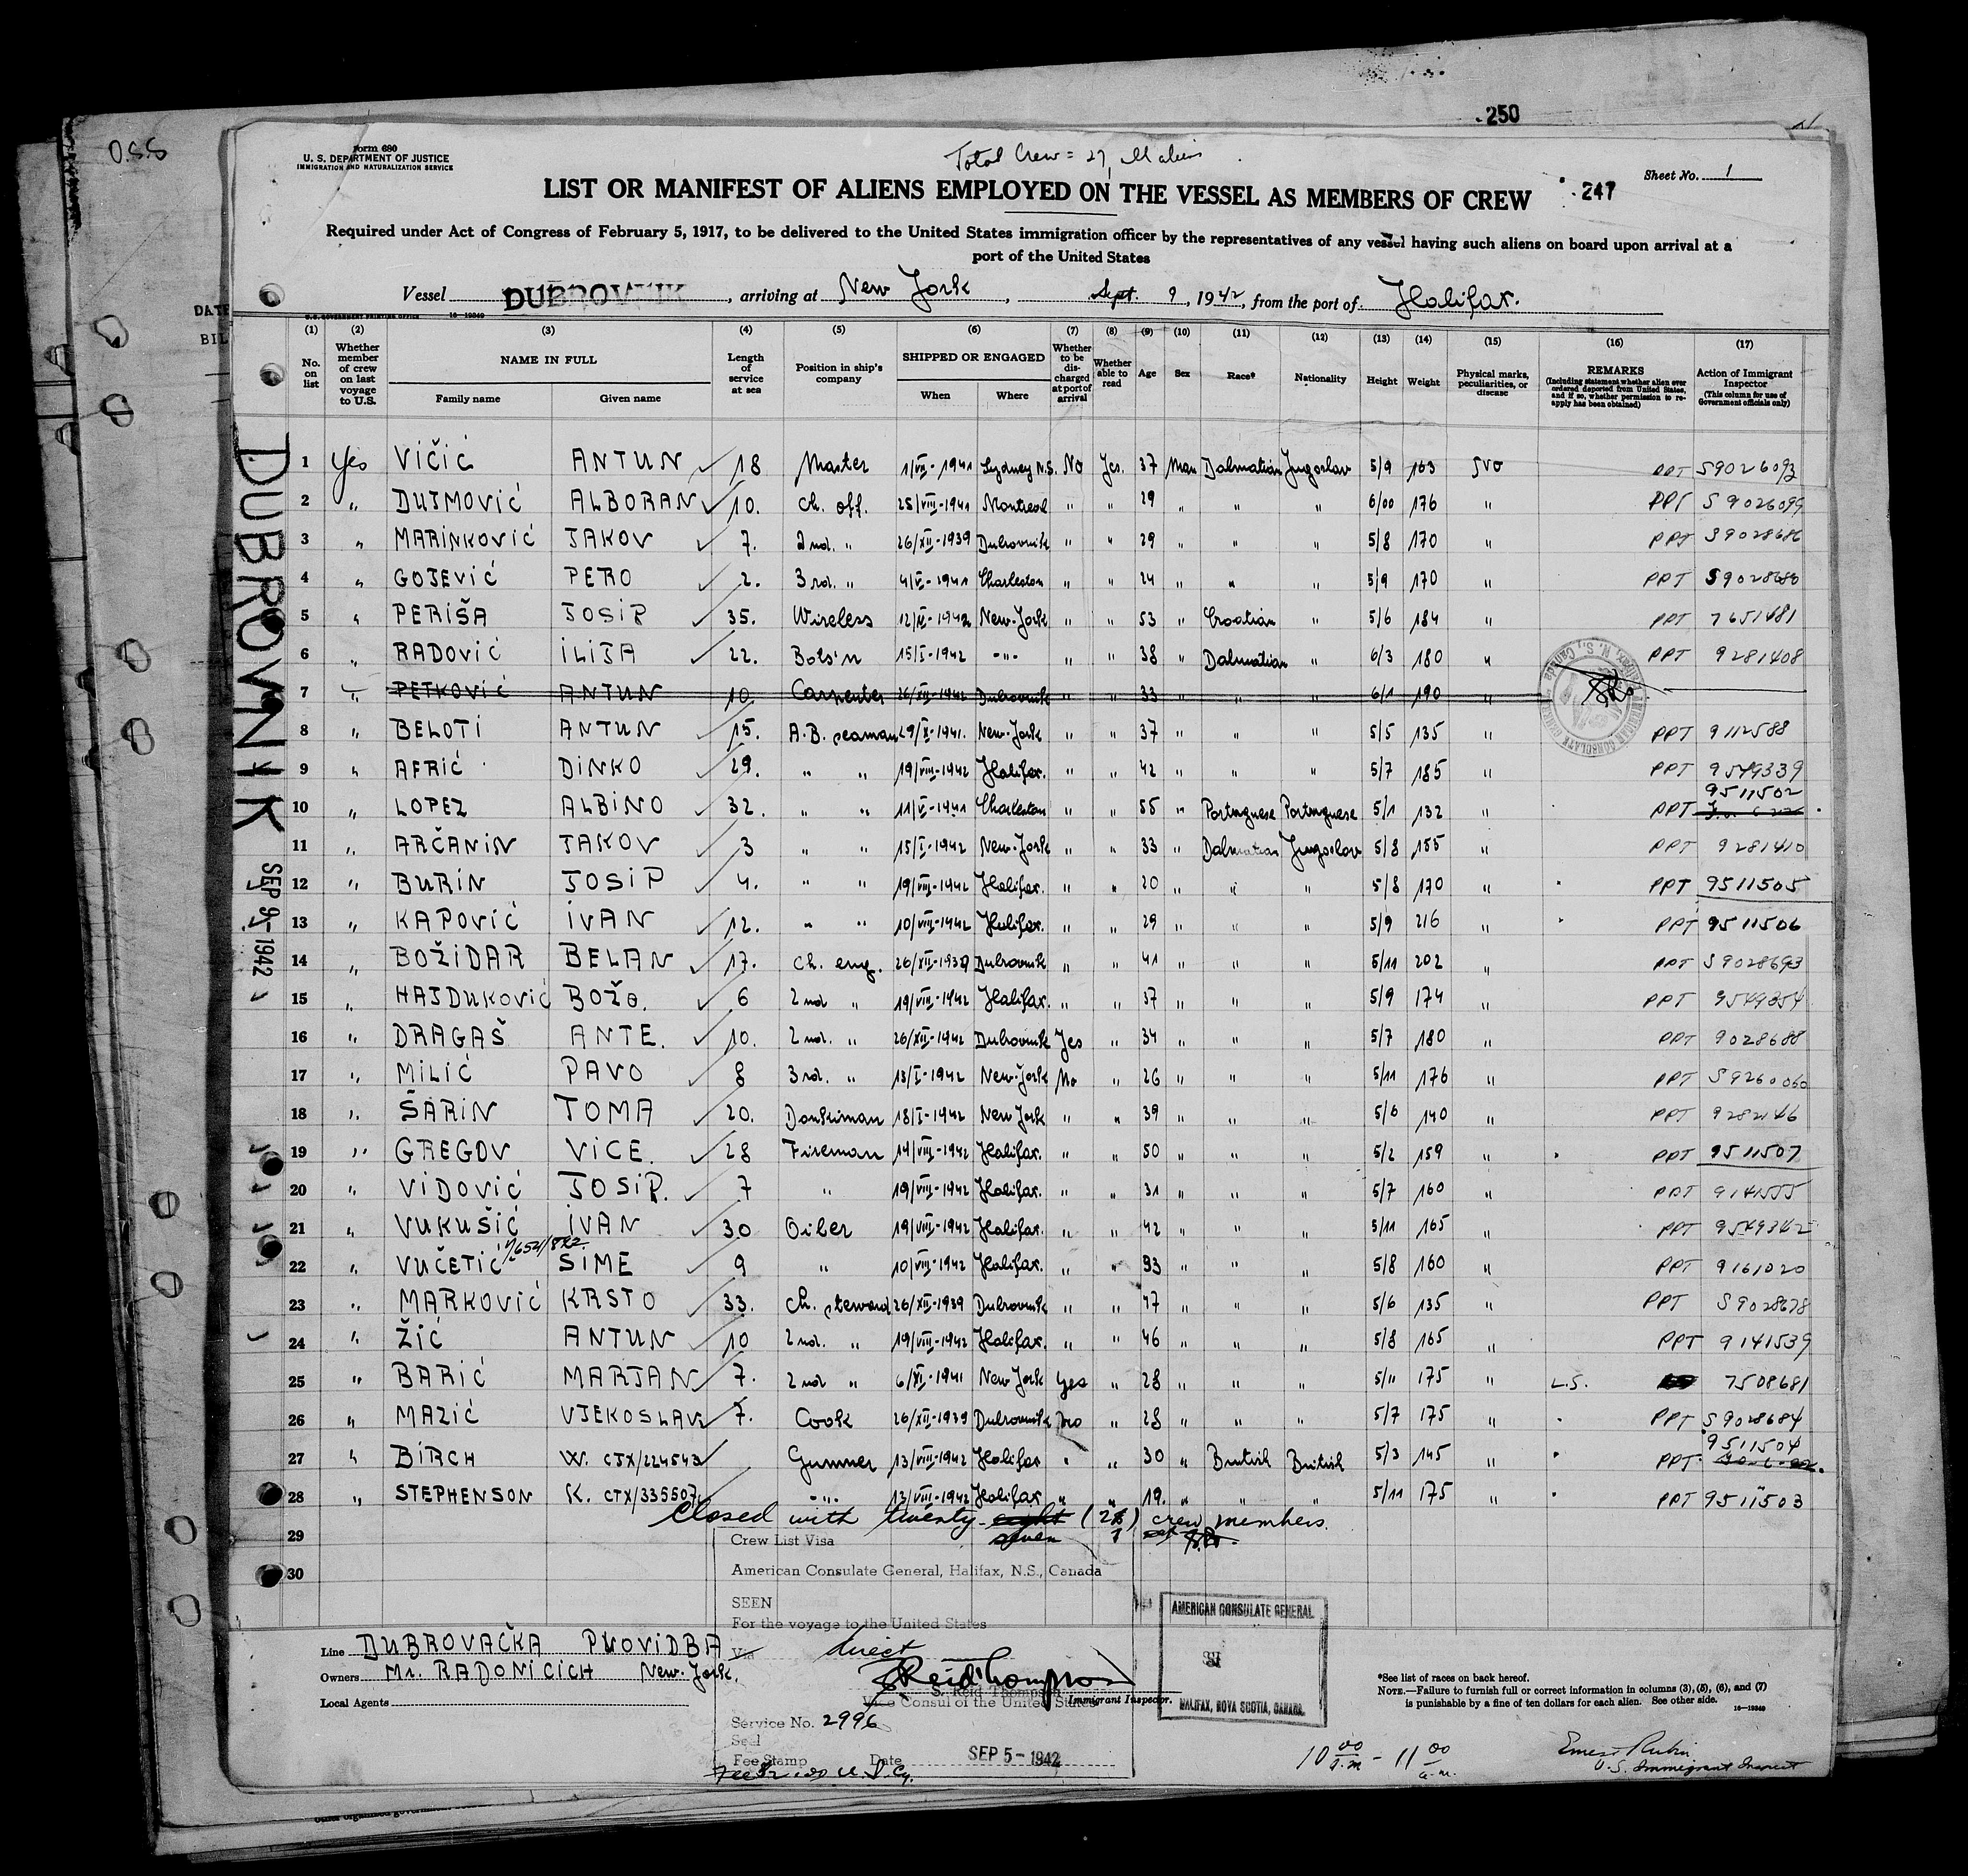 250
O.S.S
Form 680
U. S. DEPARTMENT OF JUSTICE
IMMIGRATION AND NATURALIZATION SERVICE
Total Crew = 27,
Sheet No. 1
LIST OR MANIFEST OF ALIENS EMPLOYED ON THE VESSEL AS MEMBERS OF CREW
247
Required under Act of Congress of February 5, 1917, to be delivered to the United States immigration officer by the representatives of any vessel having such aliens on board upon arrival at a
port of the United States
Vessel DUBROVNIK, arriving at New York, Sept. 9, 1942, from the port of Halifax.
(1) (2) (3) (4) (5) (6) (7) (8) (9) (10) (11) (12) (13) (14) (15) (16) (17)
No. on list
Whether member of crew on last voyage to U.S.
NAME IN FULL
Family name Given name
Length of service at sea
Position in ship's company
SHIPPED OR ENGAGED
When Where
Whether to be discharged at port of arrival
Whether able to read
Age Sex Race* Nationality Height Weight
Physical marks, peculiarities, or disease
REMARKS
(Including statement whether alien ever ordered deported from United States, and if so, whether permission to reapply has been obtained)
Action of Immigrant Inspector
(This column for use of Government officials only)
DUBROVNIK
SEP 9 - 1942
1 Yes VIČIĆ ANTUN 18 Master 1/VII-1941 Sydney N.S. No Yes. 37 Man Dalmatian Jugoslav 5/9 163 No PPT S9026093
2 " DUJMOVIĆ ALBORAN 10. Ch. off. 28/VIII-1941 Montreal " " 29 " " " 6/00 176 " PPT S9026099
3 " MARINKOVIĆ JAKOV 7. 2nd. " 26/XII-1939 Dubrovnik " " 29 " " " 5/8 170 " PPT S9028686
4 " GOJEVIĆ PERO 2. 3rd. " 4/V-1941 Charleston " " 24 " " " 5/9 170 " PPT S9028680
5 " PERIŠA JOSIP 35. Wireless 1942 New-York " " 53 " Croatian " 5/6 184 " PPT 7651481
6 " RADOVIĆ ILIJA 22. Bots'n 15/I-1942 -"- " " 38 " Dalmatian " 6/3 180 " PPT 9281408
7 " PETKOVIĆ ANTUN 10. Carpenter 26/XII-1942 Dubrovnik " " 33 " " " 6/1 190 "
8 " BELOTI ANTUN 15. A.B. seaman 29/X-1941. New-York " " 37 " " " 5/5 135 " PPT 9112588
9 " AFRIĆ DINKO 29. " " 19/VIII-1942 Halifax. " " 42 " " " 5/7 185 " PPT 9549339
10 " LOPEZ ALBINO 32. " " 11/V-1941 Charleston " " 55 " Portuguese Portuguese 5/1 132 " PPT 9511502
11 " ARČANIN JAKOV 3 " " 15/I-1942 New-York " " 33 " Dalmatian Jugoslav 5/8 155 " PPT 9281410
12 " BURIN JOSIP 4. " " 19/VIII-1942 Halifax. " " 20 " " " 5/8 170 " PPT 9511505
13 " KAPOVIĆ IVAN 12. " " 10/VIII-1942 Halifax. " " 29 " " " 5/9 216 " PPT 9511506
14 " BOŽIDAR BELAN 17. Ch. eng. 26/XII-1939 Dubrovnik " " 41 " " " 5/11 202 " PPT S9028693
15 " HAJDUKOVIĆ BOŽO. 6 2nd " 19/VIII-1942 Halifax. " " 37 " " " 5/9 174 " PPT 9549354
16 " DRAGAŠ ANTE. 10. 2nd. " 26/XII-1942 Dubrovnik Yes " 34 " " " 5/7 180 " PPT 9028688
17 " MILIĆ PAVO 8 3rd. " 13/I-1942 New-York No " 26 " " " 5/11 176 " PPT S9260060
18 " ŠARIN TOMA 20. Donkiman 18/I-1942 New York " " 39 " " " 5/6 140 " PPT 9282146
19 " GREGOV VICE. 28 Fireman 14/VIII-1942 Halifax. " " 50 " " " 5/2 159 " PPT 9511507
20 " VIDOVIĆ JOSIP. 7 " 19/VIII-1942 Halifax. " " 31 " " " 5/7 160 " PPT 9141555
21 " VUKUŠIĆ IVAN 30 Oiler 19/VIII-1942 Halifax. " " 42 " " " 5/11 165 " PPT 9549342
22 " VUČETIĆ ŠIME 9 " 10/VIII-1942 Halifax. " " 33 " " " 5/8 160 " PPT 9161020
23 " MARKOVIĆ KRSTO 33. Ch. steward 26/XII-1939 Dubrovnik " " 47 " " " 5/6 135 " PPT S9028678
24 " ŽIĆ ANTUN 10 2nd. " 19/VIII-1942 Halifax. " " 46 " " " 5/8 165 " PPT 9141539
25 " BARIĆ MARJAN 7. 2nd " 6/XI-1941 New York Yes " 28 " " " 5/11 175 " L.S. 7508681
26 " MAZIĆ VJEKOSLAV 7. Cook 26/XII-1939 Dubrovnik No " 28 " " " 5/7 175 " PPT S9028684
27 " BIRCH W. CJX/224543 Gunner 13/VIII-1942 Halifax " " 30 " British British 5/3 145 " PPT 9511504
28 " STEPHENSON K. CTX/335507 -"- 13/VIII-1942 Halifax " " 19. " " " 5/11 175 " PPT 9511503
29
30
Closed with twenty eight (28) crew members.
seven 7
Crew List Visa
American Consulate General, Halifax, N.S., Canada
SEEN
For the voyage to the United States
Via direct
S. Reid Thompson
S. Reid Thompson
Vice Consul of the United States
Immigrant Inspector.
Service No. 2996
Seal
Fee Stamp Date SEP 5 - 1942
AMERICAN CONSULATE GENERAL
HALIFAX, NOVA SCOTIA, CANADA.
Line DUBROVAČKA PLOVIDBA
Owners Mr. RADONICICH New-York.
Local Agents
*See list of races on back hereof.
NOTE.—Failure to furnish full or correct information in columns (3), (5), (6), and (7)
is punishable by a fine of ten dollars for each alien. See other side.
10 00 a.m - 11 00 a.m.
Ernest Rubin
U.S. Immigrant Inspect